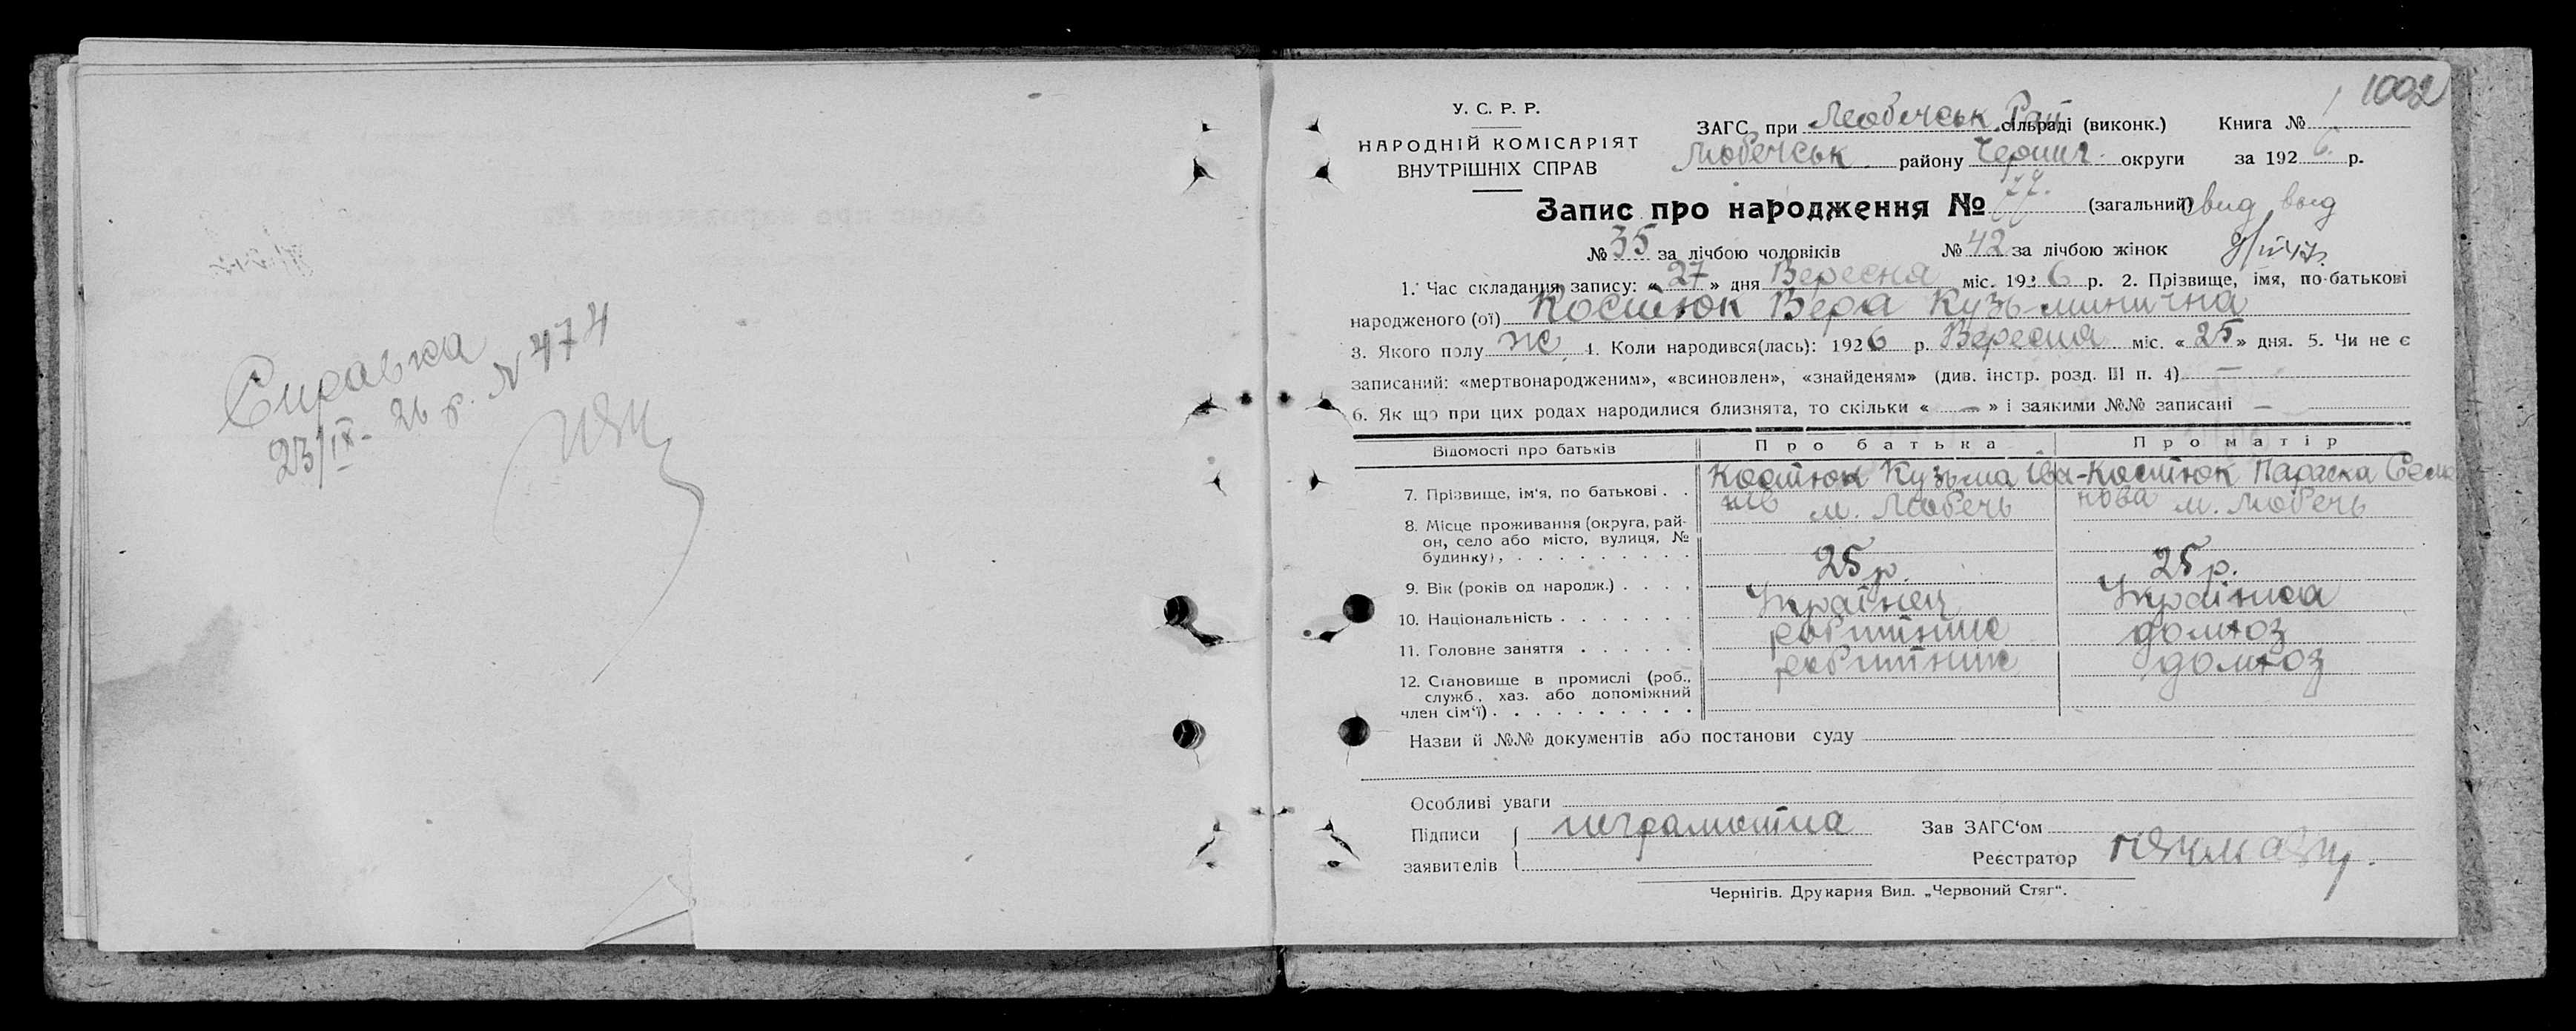 Справка
23/IX - 26 р. N 474
1002
У. С. Р. Р.
НАРОДНІЙ КОМІСАРІЯТ
ВНУТРІШНІХ СПРАВ
ЗАГС при Любечськ Рай сільраді (виконк.) Книга № 1
Любечськ району Черниг. округи за 1926 р.
Запис про народження № 77. (загальний) свид выд
№ 35 за лічбою чоловіків № 42 за лічбою жінок
1. Час складання запису: « 27 » дня Вересня міс. 1926 р. 2. Прізвище, імя, по-батькові
народженого (ої) Костюк Вера Кузьминична
3. Якого полу ж. 4. Коли народився(лась): 1926 р. Вересня міс. « 25 » дня. 5. Чи не є
записаний: «мертвонародженим», «всиновлен», «знайденям» (див. інстр. розд. III п. 4) —
6. Як що при цих родах народилися близнята, то скільки « — » і заякими №№ записані —
Відомості про батьків Про батька Про матір
7. Прізвище, ім'я, по батькові . . Костюк Кузьма Іва- Костюк Параска Семе
нів м. Любечь нова м. Любечь
8. Місце проживання (округа, рай-
он, село або місто, вулиця, №
будинку), . . . . . . . . . .
9. Вік (років од народж.) . . . . 25 р. 25 р.
10. Національність . . . . . . . Українец Українка
11. Головне заняття . . . . . . робітник домхоз
12. Становище в промислі (роб., робітник домхоз
служб., хаз. або допоміжний
член сім'ї) . . . . . . . . . .
Назви й №№ документів або постанови суду
Особливі уваги
Підписи неграмотна Зав ЗАГС'ом
заявителів Реєстратор
Чернігів. Друкарня Вид. „Червоний Стяг“.